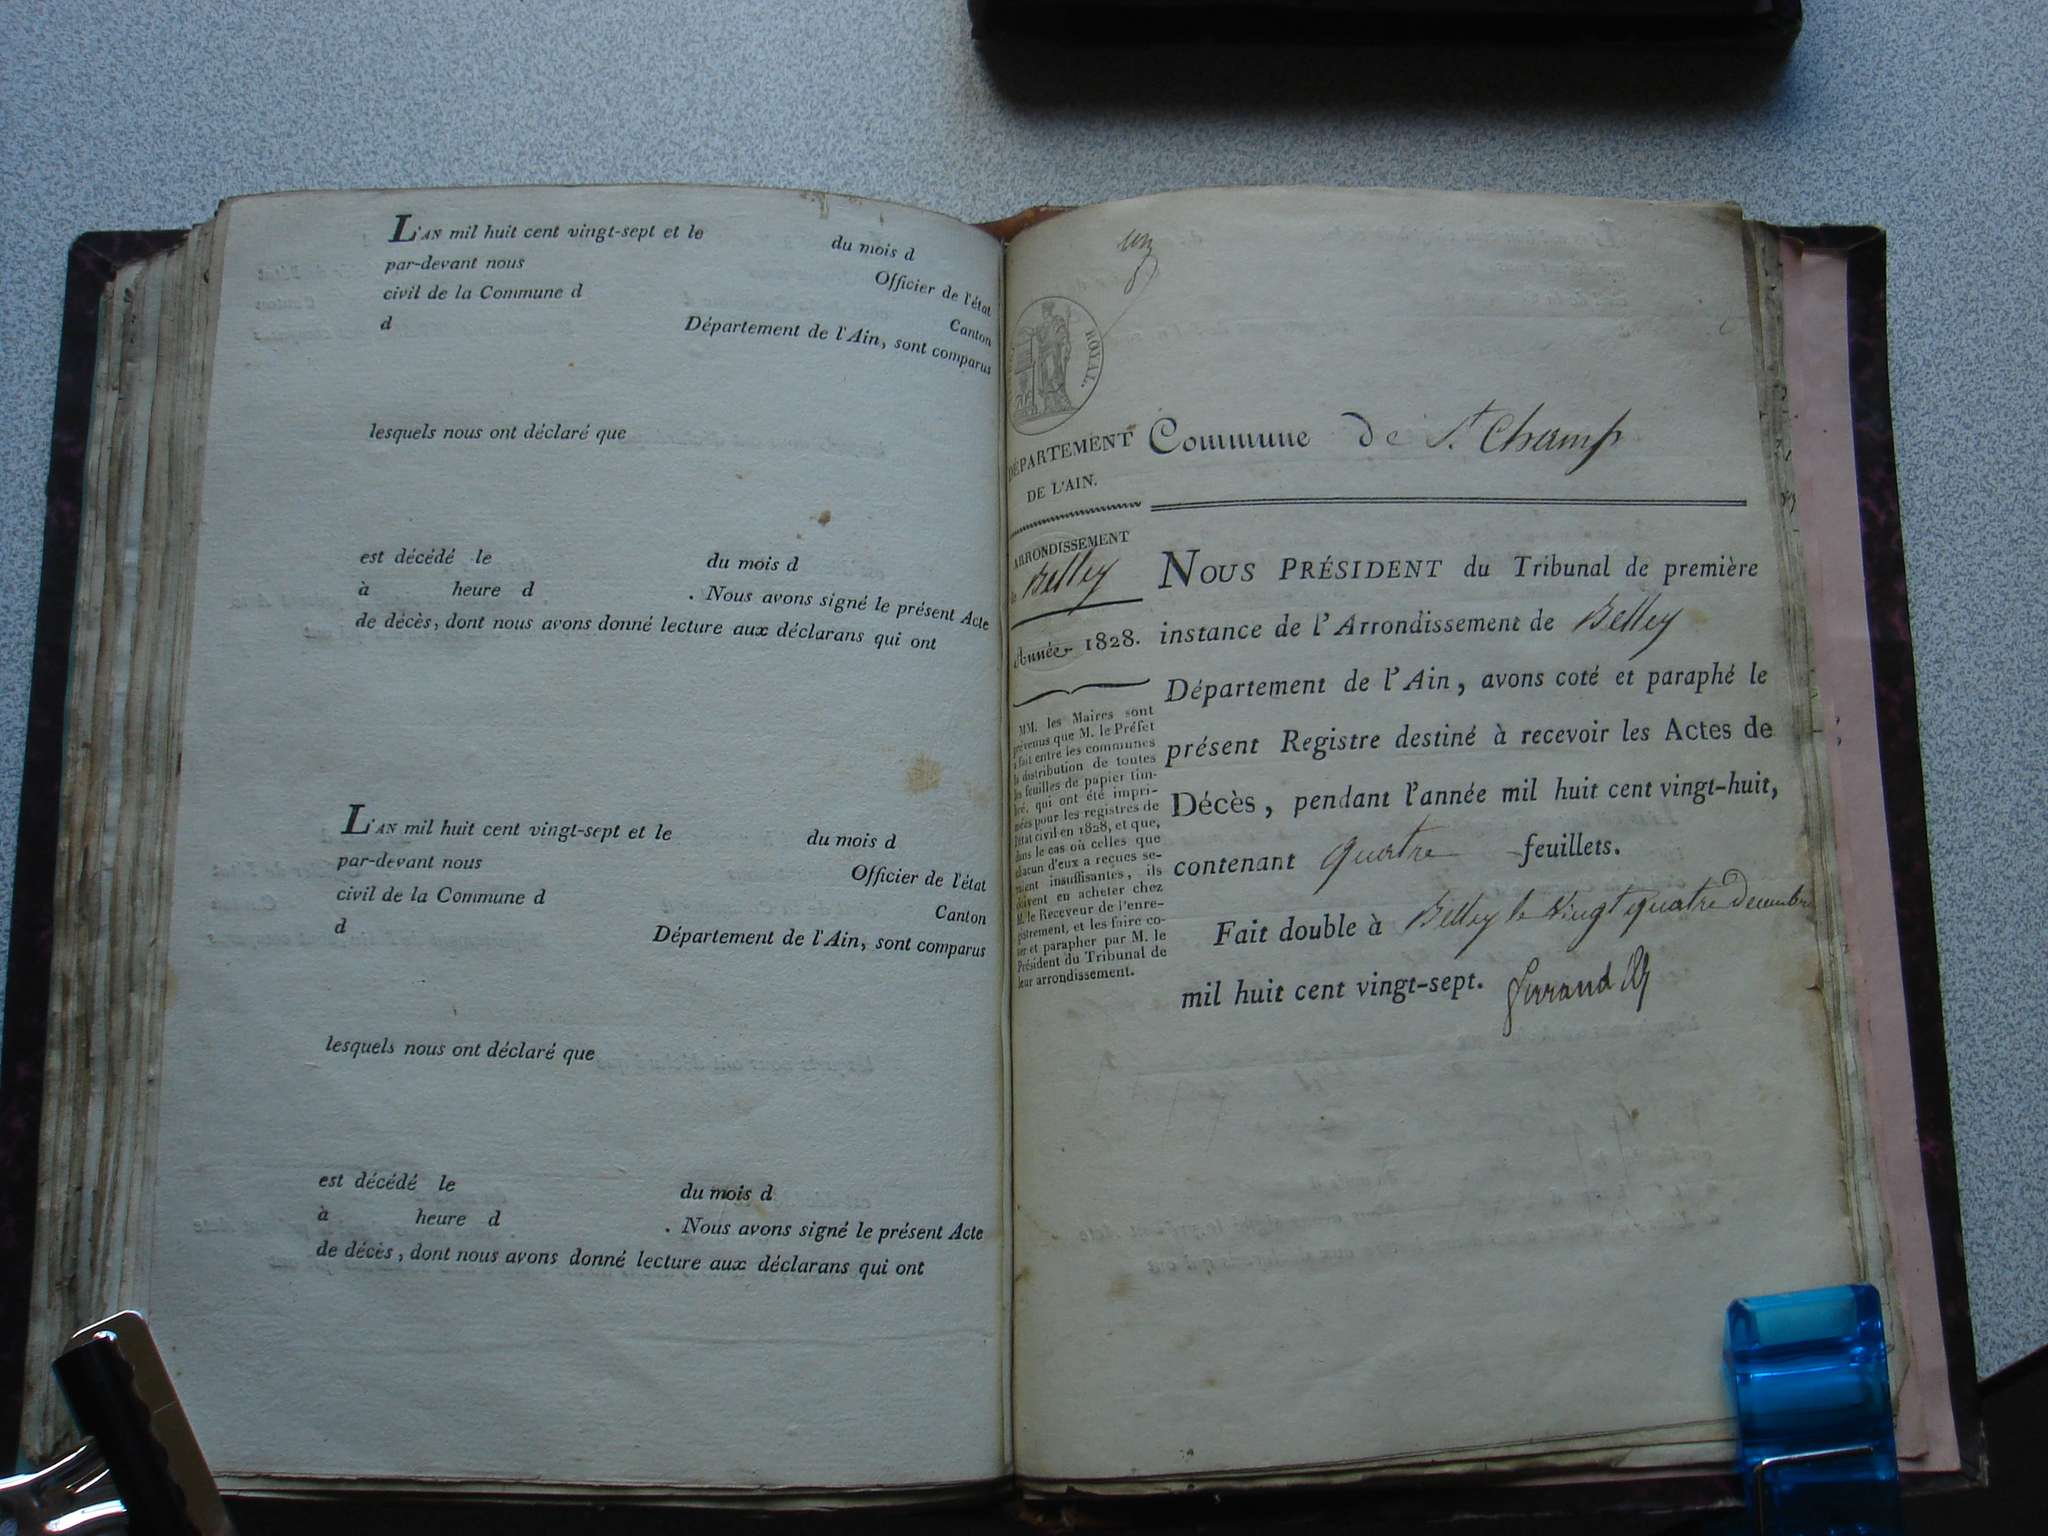 L'AN mil huit cent vingt-sept et le du mois d
par-devant nous Officier de l'état
civil de la Commune d Canton
d Département de l'Ain, sont comparus
lesquels nous ont déclaré que
est décédé le du mois d
à heure d . Nous avons signé le présent Acte
de décès, dont nous avons donné lecture aux déclarans qui ont
L'AN mil huit cent vingt-sept et le du mois d
par-devant nous Officier de l'état
civil de la Commune d Canton
d Département de l'Ain, sont comparus
lesquels nous ont déclaré que
est décédé le du mois d
à heure d . Nous avons signé le présent Acte
de décès, dont nous avons donné lecture aux déclarans qui ont
ROYAL.
DÉPARTEMENT
DE L'AIN.
ARRONDISSEMENT
Belley
Année 1828.
MM. les Maires sont
prévenus que M. le Préfet
a fait entre les communes
la distribution de toutes
les feuilles de papier tim-
bré, qui ont été impri-
mées pour les registres de
l'état civil en 1828, et que,
dans le cas où celles que
chacun d'eux a reçues se-
raient insuffisantes, ils
doivent en acheter chez
M. le Receveur de l'enre-
gistrement, et les faire co-
ter et parapher par M. le
Président du Tribunal de
leur arrondissement.
Commune de St. Champ
NOUS PRÉSIDENT du Tribunal de première
instance de l'Arrondissement de Belley
Département de l'Ain, avons coté et paraphé le
présent Registre destiné à recevoir les Actes de
Décès, pendant l'année mil huit cent vingt-huit,
contenant quatre feuillets.
Fait double à Belley le vingt quatre decembre
mil huit cent vingt-sept.